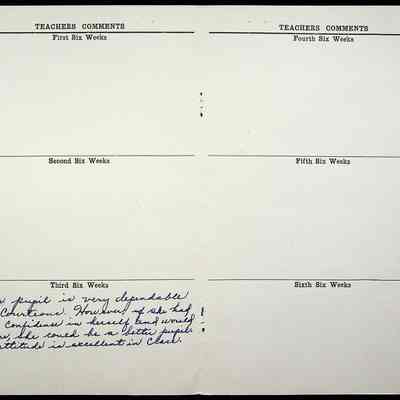 TEACHERS COMMENTS
First Six Weeks
Second Six Weeks
Third Six Weeks
pupil is very dependable
Courteous. However, if she had
confidence in herself and would
she could be a better pupil.
attitude is excellent in class.
TEACHERS COMMENTS
Fourth Six Weeks
Fifth Six Weeks
Sixth Six Weeks